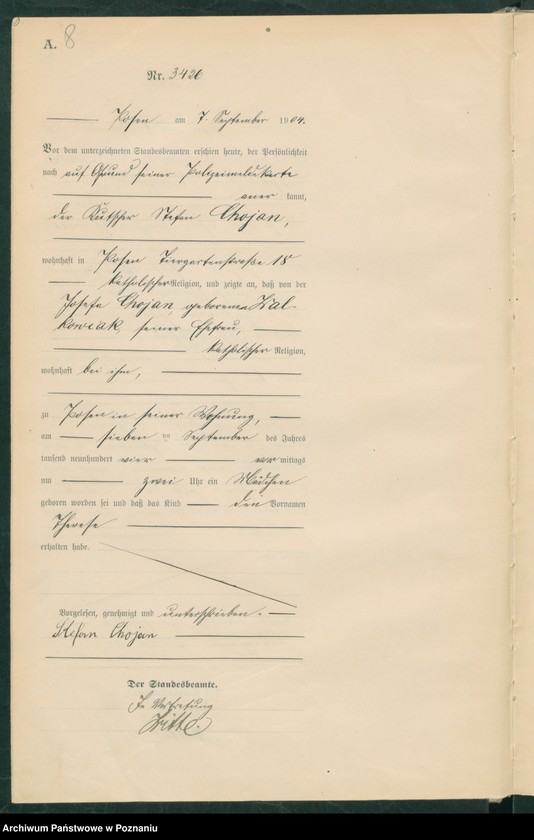 A. 8
Nr. 3426
Posen am 7. September 1904.
Vor dem unterzeichneten Standesbeamten erschien heute, der Persönlichkeit
nach auf Grund seiner Polizeimeldekarte
aner kannt,
der Kutscher Stefan Chojan,
wohnhaft in Posen Tiergartenstraße 15
katholischer Religion, und zeigte an, daß von der
Josefa Chojan, geborenen Wal-
kowiak, seiner Ehefrau,
katholischer Religion,
wohnhaft bei ihm,
zu Posen in seiner Wohnung,
am sieben ten September des Jahres
tausend neunhundert vier vor mittags
um zwei Uhr ein Mädchen
geboren worden sei und daß das Kind den Vornamen
Therese
erhalten habe.
Vorgelesen, genehmigt und unterschrieben.
Stefan Chojan
Der Standesbeamte.
In Vertretung
Archiwum Państwowe w Poznaniu